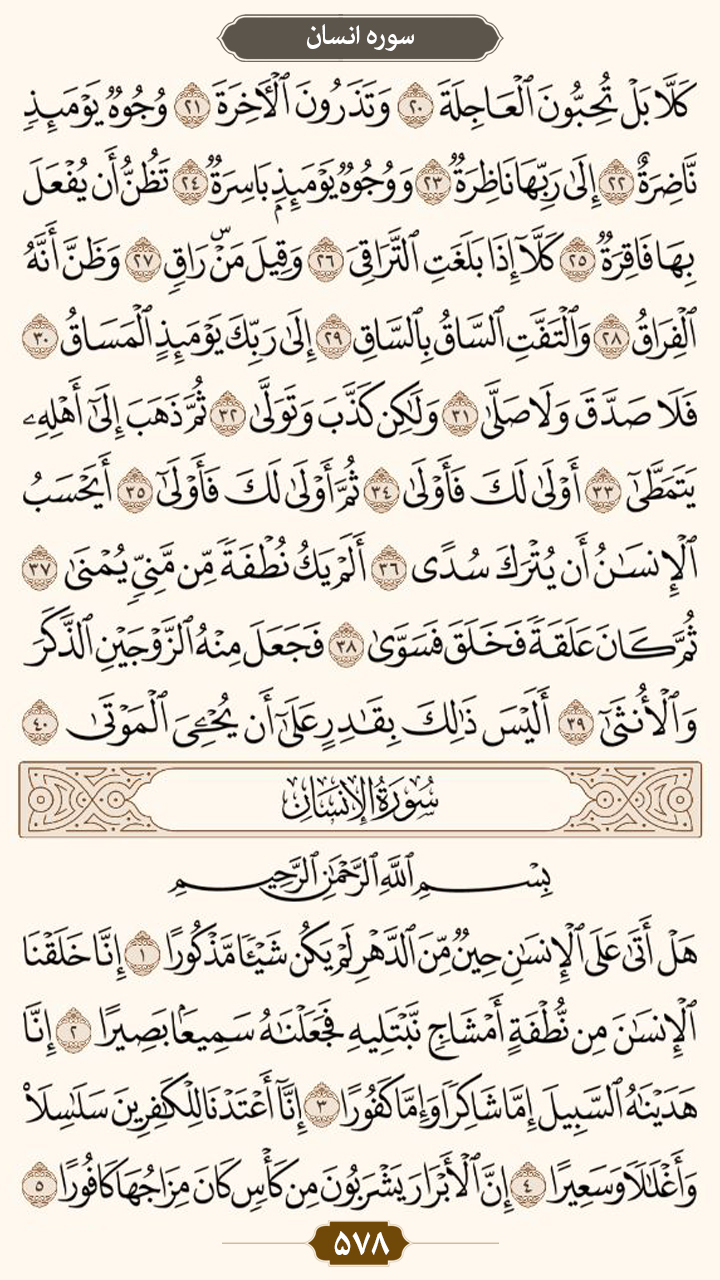 سوره انسان
كَلَّا بَلْ تُحِبُّونَ ٱلْعَاجِلَةَ ٢٠ وَتَذَرُونَ ٱلْـَٔاخِرَةَ ٢١ وُجُوهٌ يَوْمَئِذٍ
نَّاضِرَةٌ ٢٢ إِلَىٰ رَبِّهَا نَاظِرَةٌ ٢٣ وَوُجُوهٌ يَوْمَئِذٍۭ بَاسِرَةٌ ٢٤ تَظُنُّ أَن يُفْعَلَ
بِهَا فَاقِرَةٌ ٢٥ كَلَّآ إِذَا بَلَغَتِ ٱلتَّرَاقِىَ ٢٦ وَقِيلَ مَنْ ۜ رَاقٍ ٢٧ وَظَنَّ أَنَّهُ
ٱلْفِرَاقُ ٢٨ وَٱلْتَفَّتِ ٱلسَّاقُ بِٱلسَّاقِ ٢٩ إِلَىٰ رَبِّكَ يَوْمَئِذٍ ٱلْمَسَاقُ ٣٠
فَلَا صَدَّقَ وَلَا صَلَّىٰ ٣١ وَلَٰكِن كَذَّبَ وَتَوَلَّىٰ ٣٢ ثُمَّ ذَهَبَ إِلَىٰٓ أَهْلِهِۦ
يَتَمَطَّىٰٓ ٣٣ أَوْلَىٰ لَكَ فَأَوْلَىٰ ٣٤ ثُمَّ أَوْلَىٰ لَكَ فَأَوْلَىٰٓ ٣٥ أَيَحْسَبُ
ٱلْإِنسَٰنُ أَن يُتْرَكَ سُدًى ٣٦ أَلَمْ يَكُ نُطْفَةً مِّن مَّنِىٍّ يُمْنَىٰ ٣٧
ثُمَّ كَانَ عَلَقَةً فَخَلَقَ فَسَوَّىٰ ٣٨ فَجَعَلَ مِنْهُ ٱلزَّوْجَيْنِ ٱلذَّكَرَ
وَٱلْأُنثَىٰٓ ٣٩ أَلَيْسَ ذَٰلِكَ بِقَٰدِرٍ عَلَىٰٓ أَن يُحْـِۧىَ ٱلْمَوْتَىٰ ٤٠
سُورَةُ الإِنسَانِ
بِسْمِ ٱللَّهِ ٱلرَّحْمَٰنِ ٱلرَّحِيمِ
هَلْ أَتَىٰ عَلَى ٱلْإِنسَٰنِ حِينٌ مِّنَ ٱلدَّهْرِ لَمْ يَكُن شَيْـًٔا مَّذْكُورًا ١ إِنَّا خَلَقْنَا
ٱلْإِنسَٰنَ مِن نُّطْفَةٍ أَمْشَاجٍ نَّبْتَلِيهِ فَجَعَلْنَٰهُ سَمِيعًۢا بَصِيرًا ٢ إِنَّا
هَدَيْنَٰهُ ٱلسَّبِيلَ إِمَّا شَاكِرًا وَإِمَّا كَفُورًا ٣ إِنَّآ أَعْتَدْنَا لِلْكَٰفِرِينَ سَلَٰسِلَا۟
وَأَغْلَٰلًا وَسَعِيرًا ٤ إِنَّ ٱلْأَبْرَارَ يَشْرَبُونَ مِن كَأْسٍ كَانَ مِزَاجُهَا كَافُورًا ٥
۵۷۸